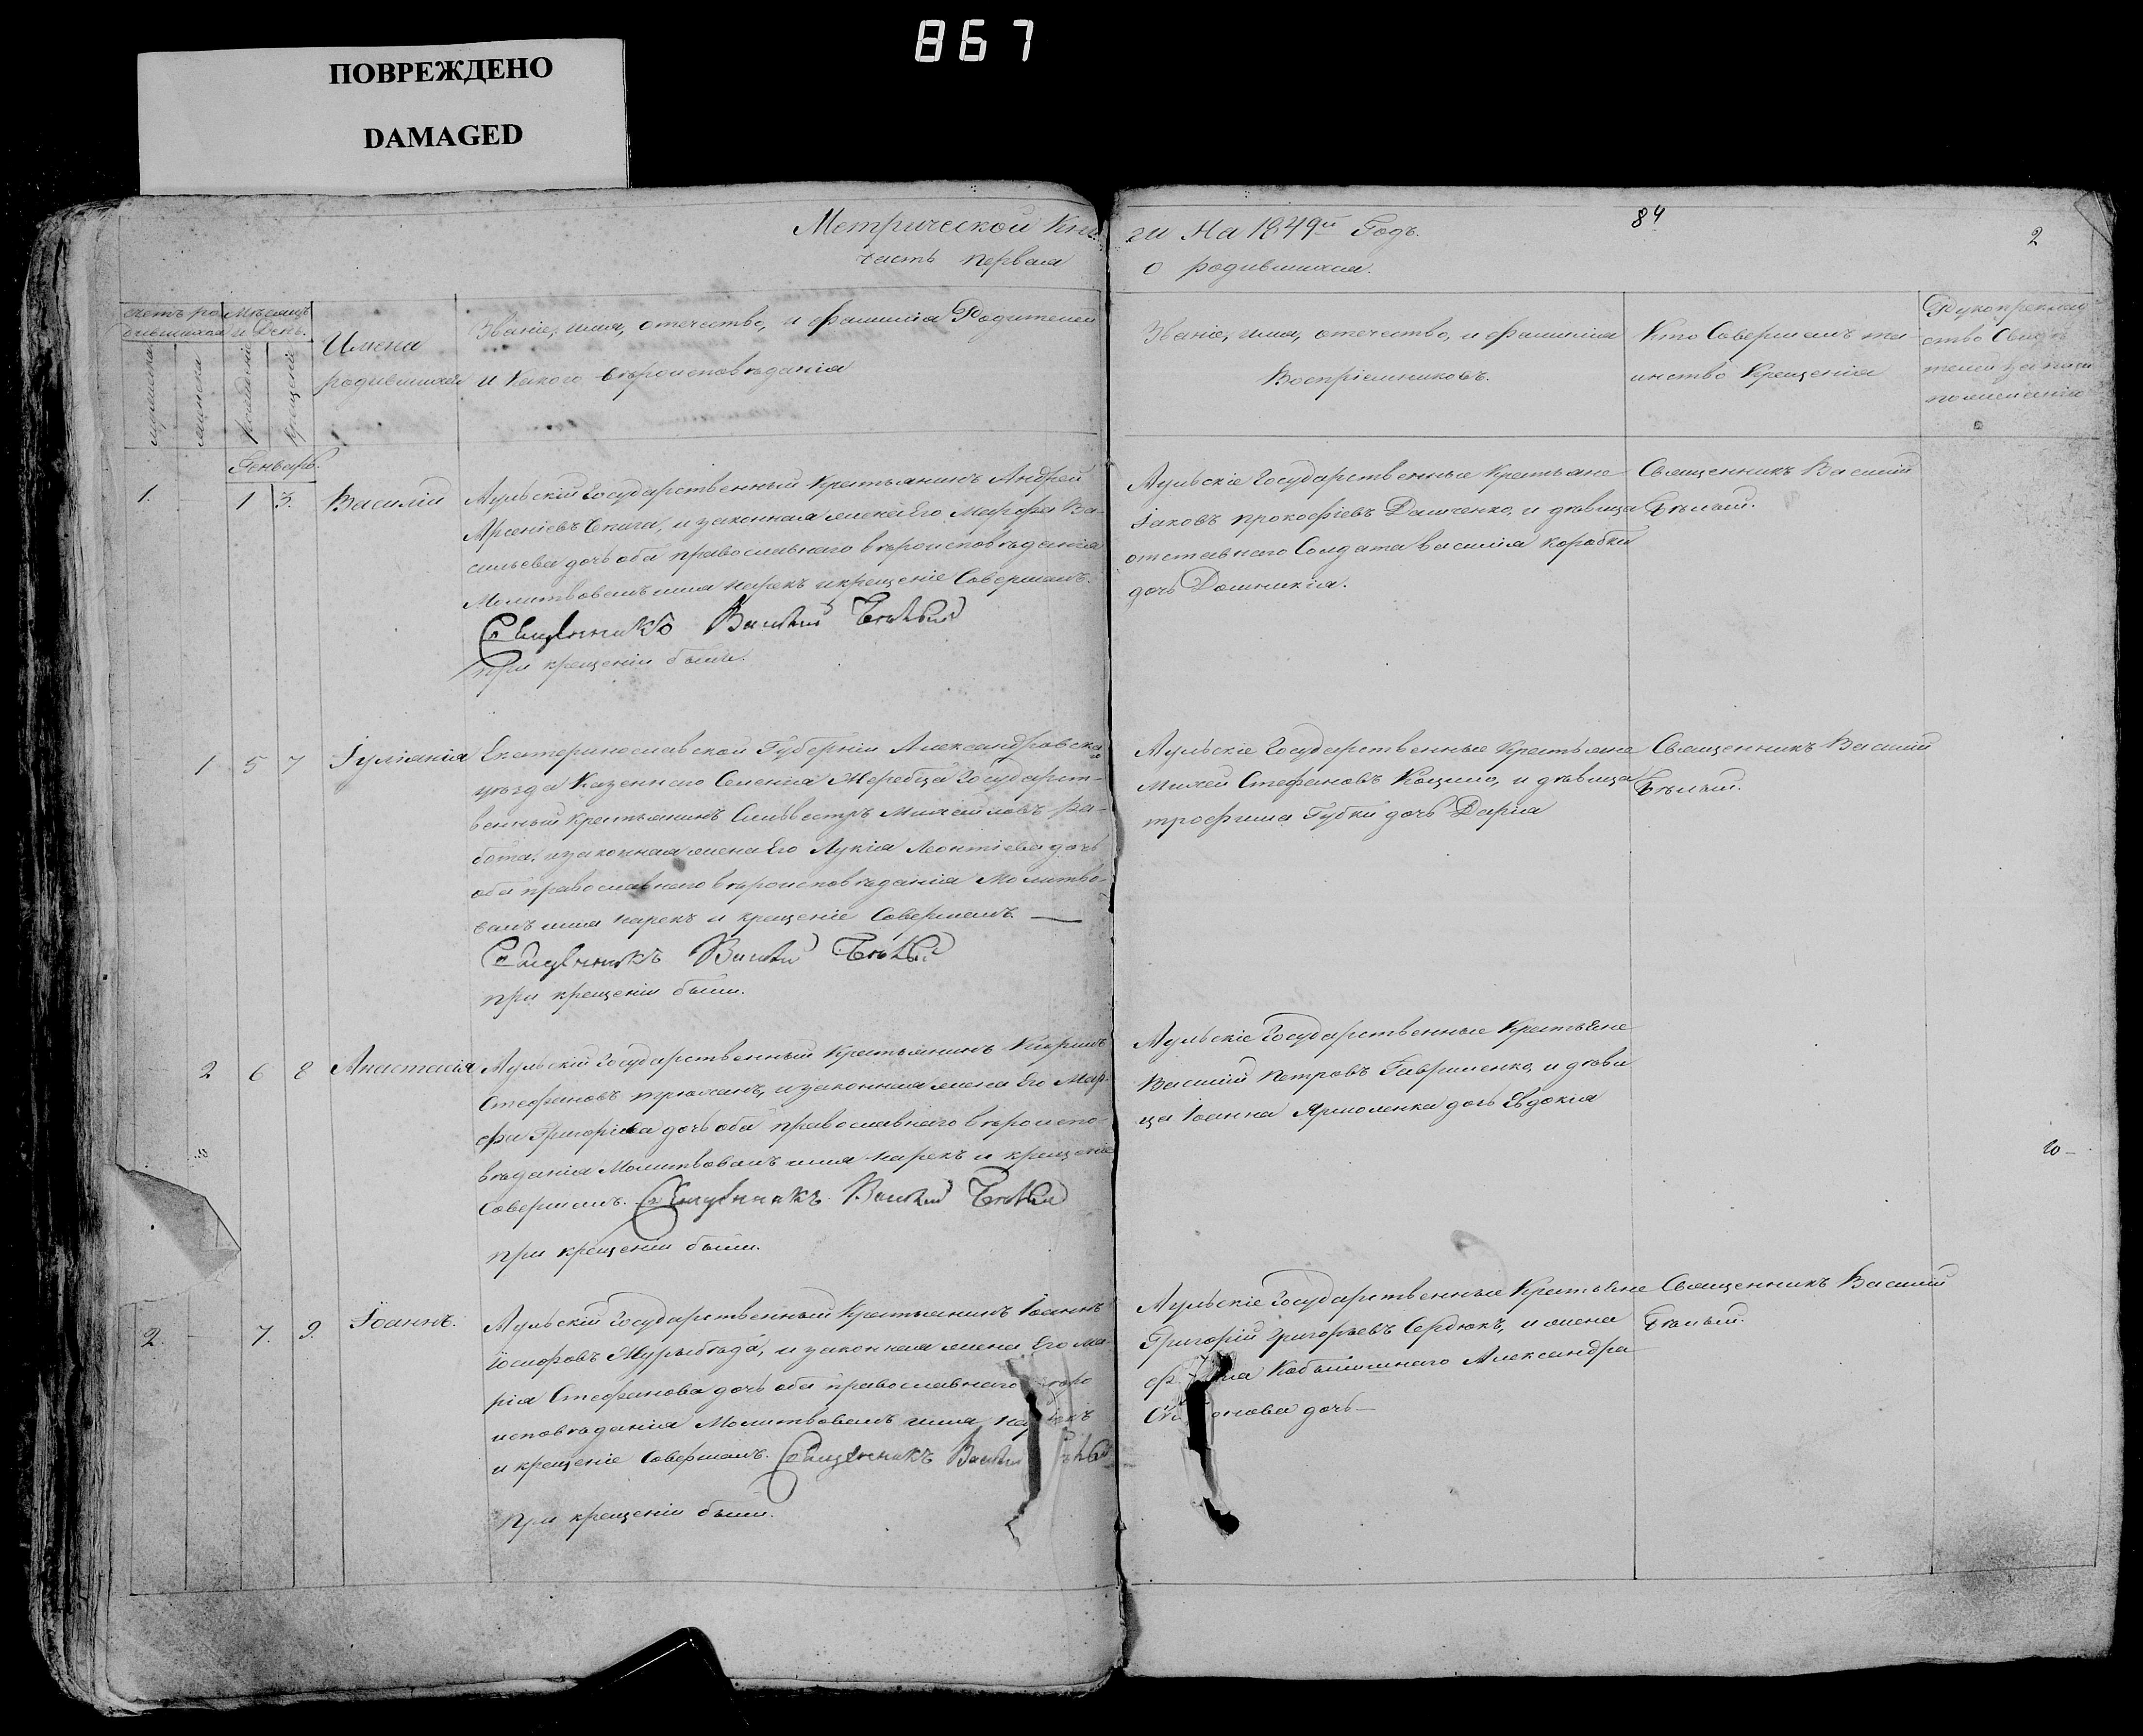 867
ПОВРЕЖДЕНО
DAMAGED
Метрической Кни
ги На 1849й Годъ.
84
2
часть первая
о родившихся.
счетъ ро
дившихся
Мѣсяцъ
и День.
мужеска
женска
рожденія
крещенія
Имена
родившихся
Званіе, имя, отечество, и фамилія Родителей
и Какого вѣроисповѣданія
Званіе, имя, отечество, и фамилія
Воспріемниковъ.
Кто Совершалъ та
инство Крещенія
Рукоприклад
ство Свидѣ
телей
Генварь.
1.
1
3.
Василій
Аульскій Государственный Крестьянинъ Андрей
Арсеніевъ и законная жена Его Марфа Ва-
сильева дочь оба православнаго вѣроисповѣданія
Молитвовалъ имя нарекъ и крещеніе Совершалъ.
Священникъ Василій Бѣлый
При крещеніи были.
Аульскіе Государственные Крестьяне
Іаковъ прокофіевъ Данченко, и дѣвица
отставнаго Солдата Василія Коробки
дочь Домникія.
Священникъ Василій
Бѣлый.
1
5
7
Іуліанія
Екатеринославской Губерніи Александровска
го
уѣзда Казеннаго Селенія Жеребца Государст-
венный Крестьянинъ Сильвестръ Михайловъ Ра-
бота, и законная жена Его Лукія Леонтіева дочь
оба православнаго вѣроисповѣданія Молитво-
валъ имя нарекъ и крещеніе Совершалъ —
Священникъ Василій Бѣлый
при крещеніи были.
Аульскіе Государственные Крестьяне
Михей Стефановъ и дѣвица
трофима Губки дочь Дарія
Священникъ Василій
Бѣлый.
2
6
8
Анастасія
Аульскій Государственный Крестьянинъ Кирилъ
Стефановъ трюханъ, и законная жена Его Мар-
фа Григоріева дочь оба православнаго вѣроиспо-
вѣданія Молитвовалъ имя нарекъ и крещеніе
Совершалъ. Священникъ Василій Бѣлый
при крещеніи были.
Аульскіе Государственные Крестьяне
Василій Петровъ Гавриленко, и дѣви
ца Іоанна Ярмоленка дочь Евдокія
2.
7.
9.
Іоаннъ.
Аульскій Государственный Крестьянинъ Іоаннъ
Іосифовъ Журыбѣда, и законная жена Его Ма-
рія Стефанова дочь оба православнаго вѣро
исповѣданія Молитвовалъ имя нарекъ
и крещеніе Совершалъ. Священникъ Василій Бѣлый
При крещеніи были.
Аульскіе Государственные Крестьяне
Григорій григорьевъ Сердюкъ, и жена
Кобыляшнаго Александра
дочь —
Священникъ Василій
Бѣлый.